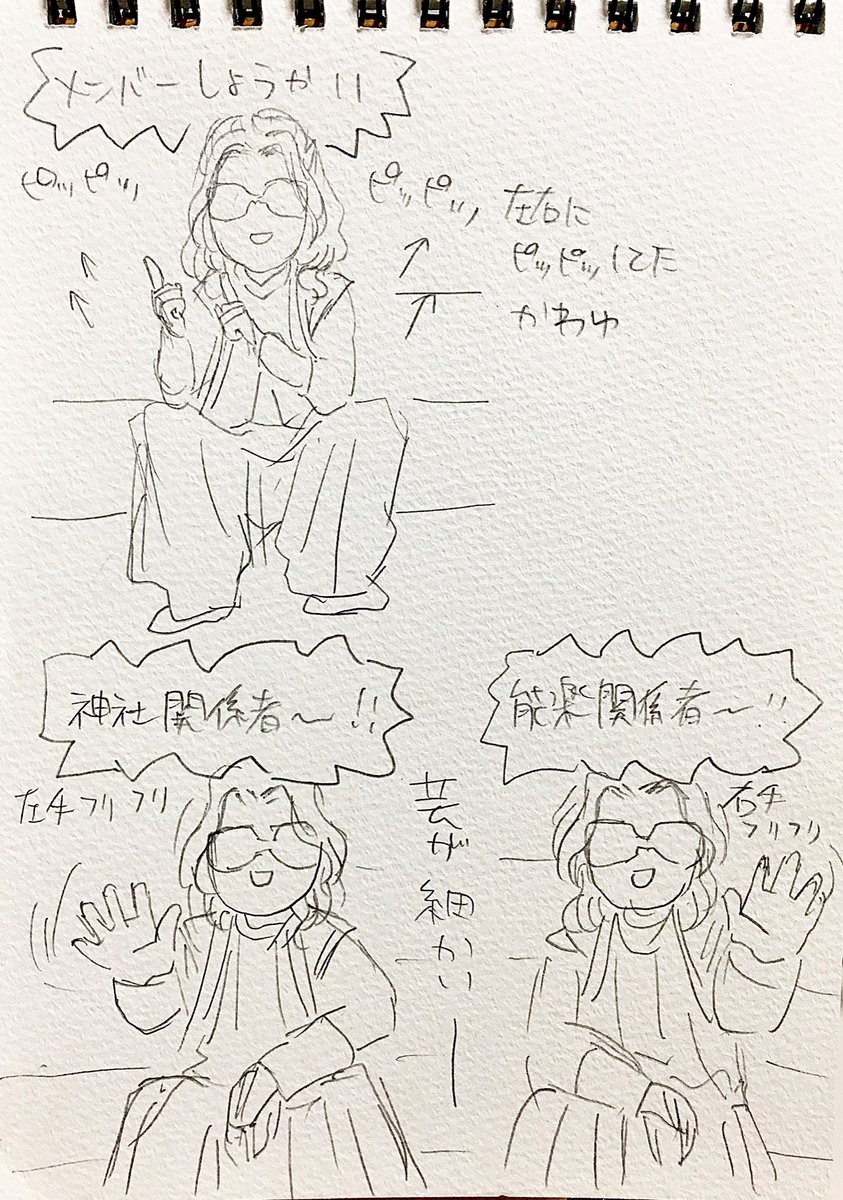 メンバーしょうかい!!
ピッピッ
ピッピッ
左右に
ピッピッしてた
かわゆ
神社関係者〜!!
左手フリフリ
芸が細かいー
能楽関係者〜!!
右手
フリフリ